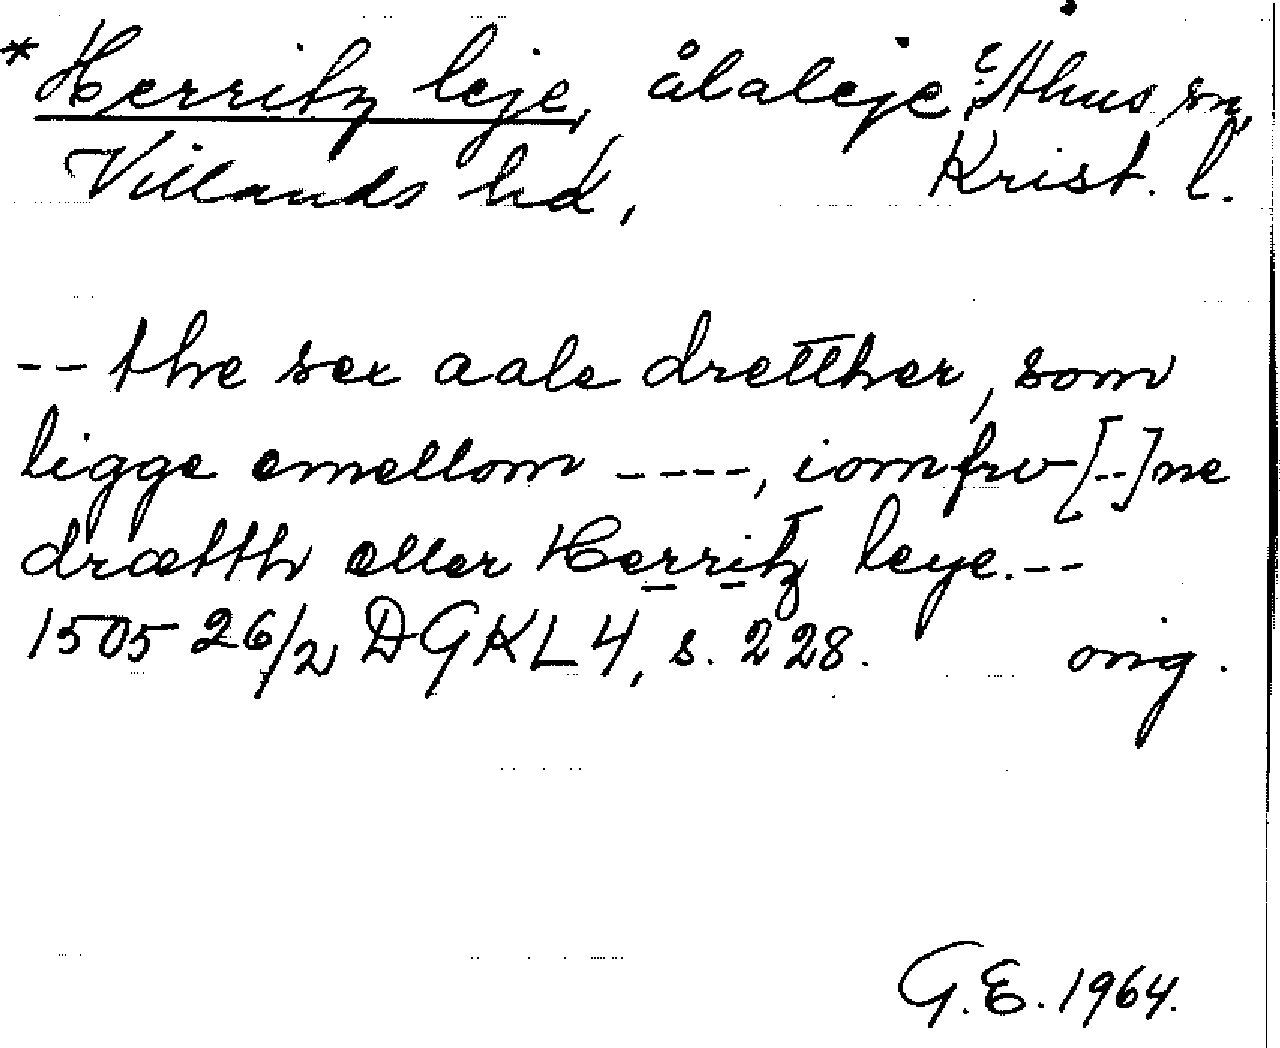 *Herritz leje, ålaleje i Åhus sn,
Villands hd, Krist. l.
-- the sex aale dretther, som
ligge emellom ----, iomfrv [--]ne
drætth eller Herritz leye.--
1505 26/2 DGKL 4, s. 228. orig.
G.E. 1964.